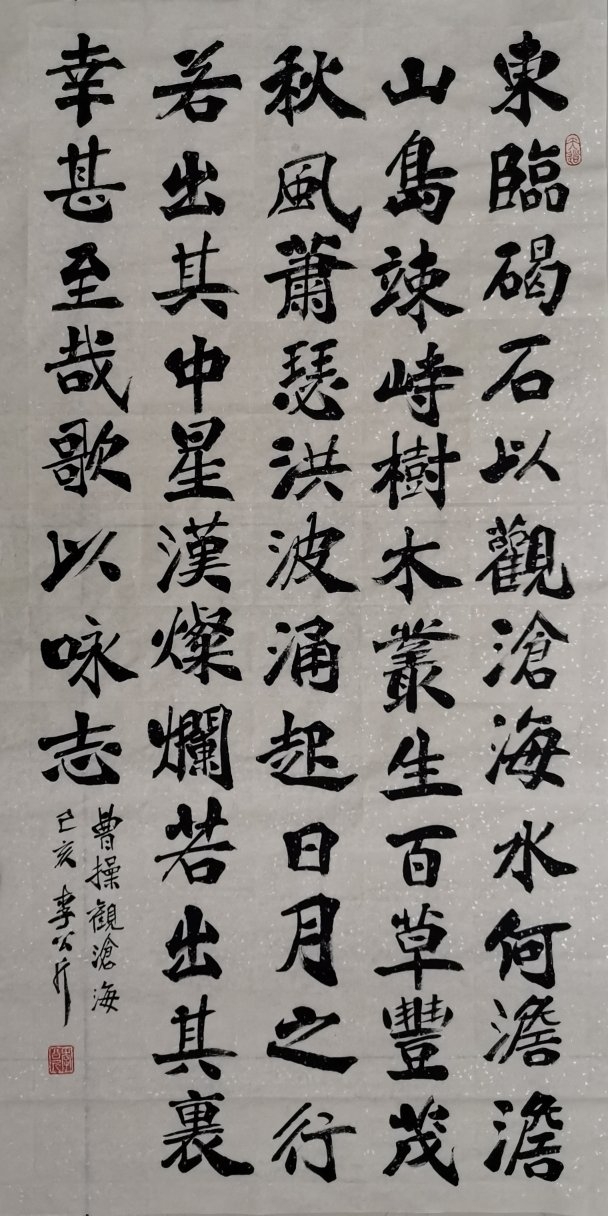 東臨碣石以觀滄海水何澹澹
山島竦峙樹木叢生百草豐茂
秋風蕭瑟洪波涌起日月之行
若出其中星漢燦爛若出其裏
幸甚至哉歌以咏志
曹操觀滄海
己亥 李公